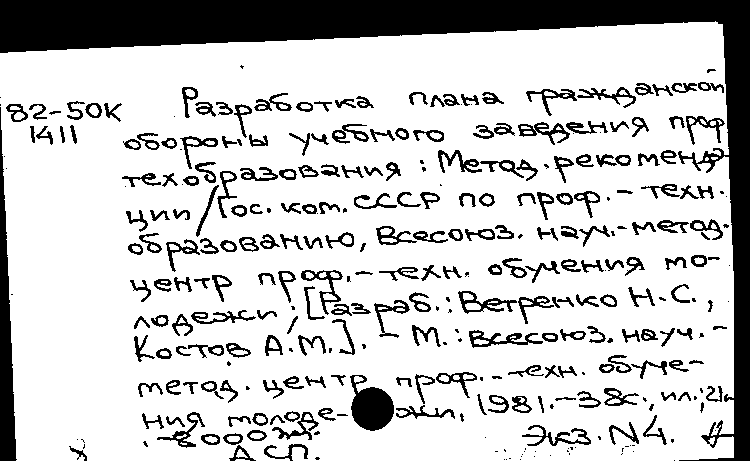 82-50К Разработка плана гражданской
1411 обороны учебного заведения проф
техобразования : Метод. рекоменда-
ции / Гос. ком. СССР по проф.-техн.
образованию, Всесоюз. науч.-метод.
центр проф.-техн. обучения мо-
лодежи ; [Разраб.: Ветренко Н.С.,
Костов А.М.]. - М. : Всесоюз. науч.-
метод. центр проф.-техн. обуче-
ния молоде- жи, 1981.-38с., ил.; 21
.-8000 экз. Экз. N4.
АСП.